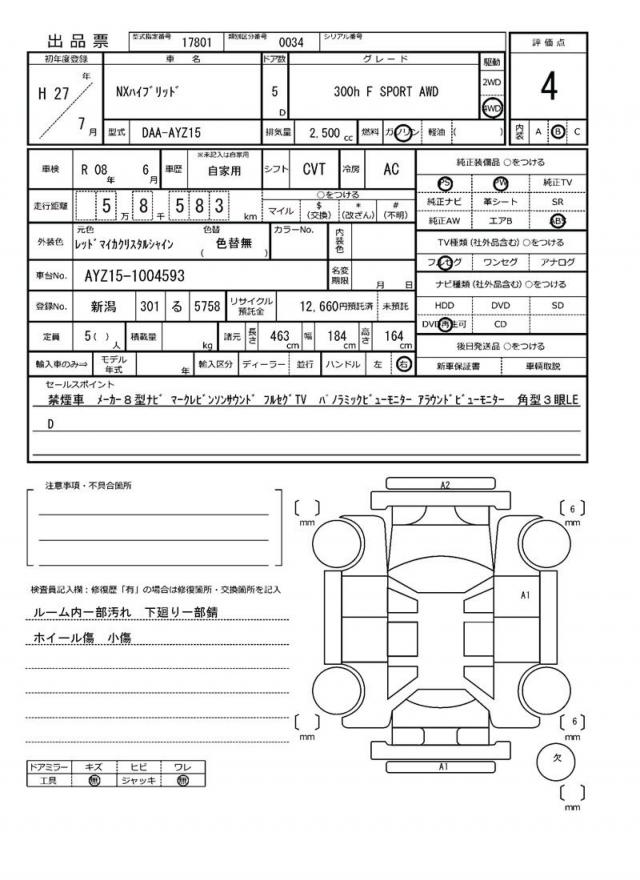 出品票 型式指定番号 17801 類別区分番号 0034 シリアル番号
初年度登録 車名 ドア数 グレード 駆動 評価点
H 27 年 7 月 NXﾊｲﾌﾞﾘｯﾄﾞ 5 D 300h F SPORT AWD 2WD 4WD 4
型式 DAA-AYZ15 排気量 2,500 cc 燃料 ガソリン 軽油 ( ) 内装 A B C
車検 R 08 年 6 月 車歴 ※未記入は自家用 自家用 シフト CVT 冷房 AC
走行距離 5 万 8 千 5 8 3 km ○をつける マイル $ (交換) * (改ざん) # (不明)
外装色 元色 レッドマイカクリスタルシャイン 色替 ( 色替無 ) カラーNo. 内装色
車台No. AYZ15-1004593 名変期限 月 日
登録No. 新潟 301 る 5758 リサイクル預託金 12,660円預託済 未預託
定員 5( ) 人 積載量 kg 諸元 長さ 463 cm 幅 184 cm 高さ 164 cm
輸入車のみ⇒ モデル年式 年 輸入区分 ディーラー 並行 ハンドル 左 右
純正装備品 ○をつける
PS PW 純正TV
純正ナビ 革シート SR
純正AW エアB ABS
TV種類(社外品含む) ○をつける
フルセグ ワンセグ アナログ
ナビ種類(社外品含む) ○をつける
HDD DVD SD
DVD再生可 CD
後日発送品 ○をつける
新車保証書 車輌取説
セールスポイント
禁煙車 ﾒｰｶｰ8型ﾅﾋﾞ ﾏｰｸﾚﾋﾞﾝｿﾝｻｳﾝﾄﾞ ﾌﾙｾｸﾞTV ﾊﾟﾉﾗﾐｯｸﾋﾞｭｰﾓﾆﾀｰ ｱﾗｳﾝﾄﾞﾋﾞｭｰﾓﾆﾀｰ 角型3眼LE
D
注意事項・不具合箇所
検査員記入欄：修復歴「有」の場合は修復箇所・交換箇所を記入
ルーム内一部汚れ 下廻り一部錆
ホイール傷 小傷
ドアミラー キズ ヒビ ワレ
工具 無 ジャッキ 無
A2
[ ] mm [ 6 ] mm
A1
[ ] mm [ 6 ] mm
A1
欠
[ ] mm